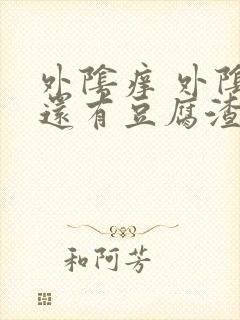 外陰痒 外陰
還有豆腐渣
和阿芳